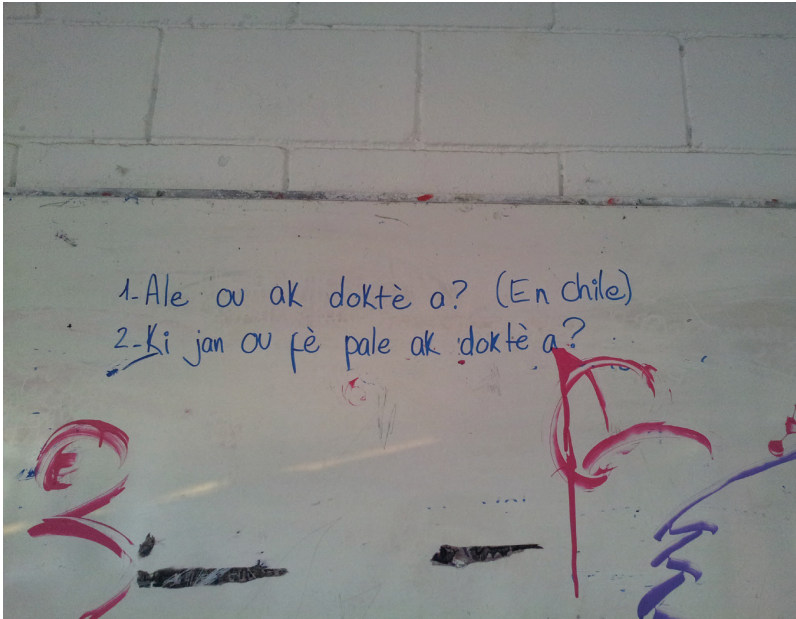 1-Ale ou ak doktè a? (En chile)
2-Ki jan ou fè pale ak doktè a?